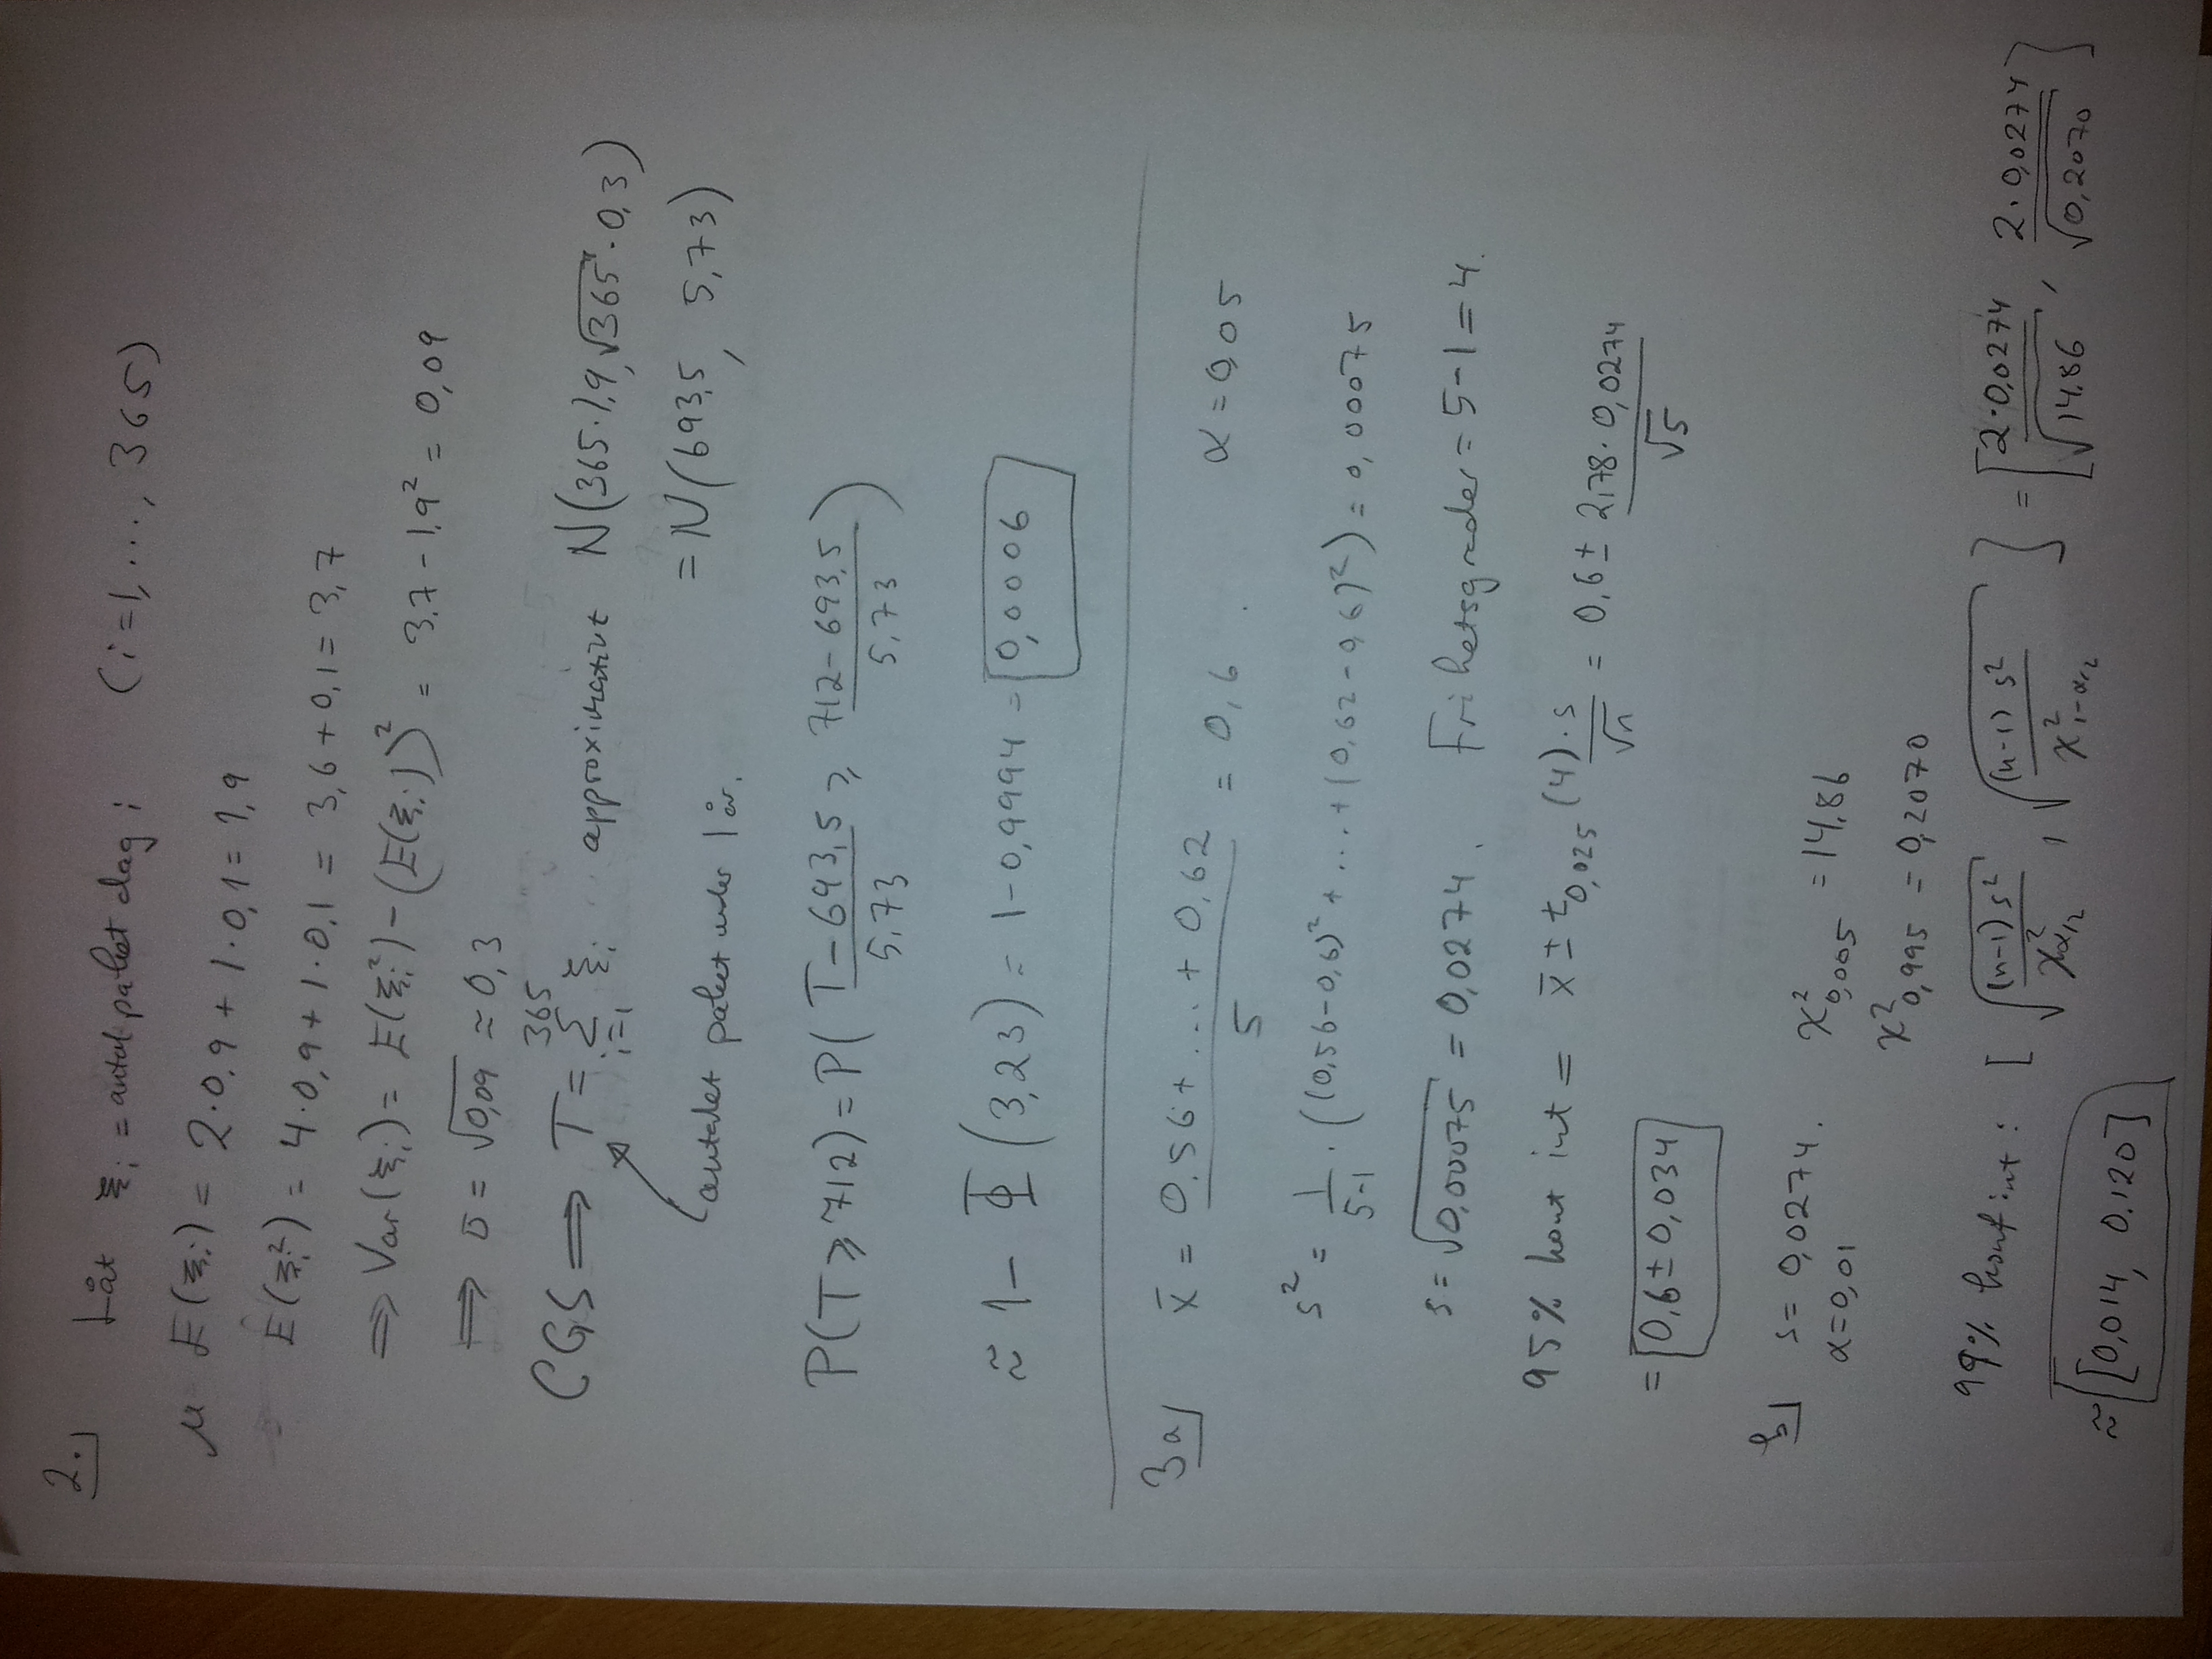 2.
Låt ξᵢ = antal paket dag i (i=1, ..., 365)
μ E(ξᵢ) = 2·0,9 + 1·0,1 = 1,9
E(ξᵢ²) = 4·0,9 + 1·0,1 = 3,6 + 0,1 = 3,7
⇒ Var(ξᵢ) = E(ξᵢ²) − (E(ξᵢ))² = 3,7 − 1,9² = 0,09
⇒ σ = √0,09 ≈ 0,3
CGS ⇒ T = ∑_{i=1}^{365} ξᵢ approximativt N(365·1,9, √365·0,3)
= N(693,5, 5,73)
antalet paket under 1 år.
P(T ≥ 712) = P( (T − 693,5)/5,73 ≥ (712 − 693,5)/5,73 )
≈ 1 − Φ(3,23) = 1 − 0,9994 = 0,0006
3a
x̄ = (0,56 + ... + 0,62)/5 = 0,6. α = 0,05
s² = 1/(5−1) · ((0,56−0,6)² + ... + (0,62−0,6)²) = 0,00075
s = √0,00075 = 0,0274. Frihetsgrader = 5−1 = 4.
95% konf int = x̄ ± t_{0,025}(4) · s/√n = 0,6 ± 2,78·0,0274/√5
= 0,6 ± 0,034
b
s = 0,0274. χ²_{0,005} = 14,86
α = 0,01 χ²_{0,995} = 0,2070
99% konf int: [ √((n−1)s²/χ²_{α/2}), √((n−1)s²/χ²_{1−α/2}) ] = [ 2·0,0274/√14,86, 2·0,0274/√0,2070 ]
≈ [0,014, 0,120]